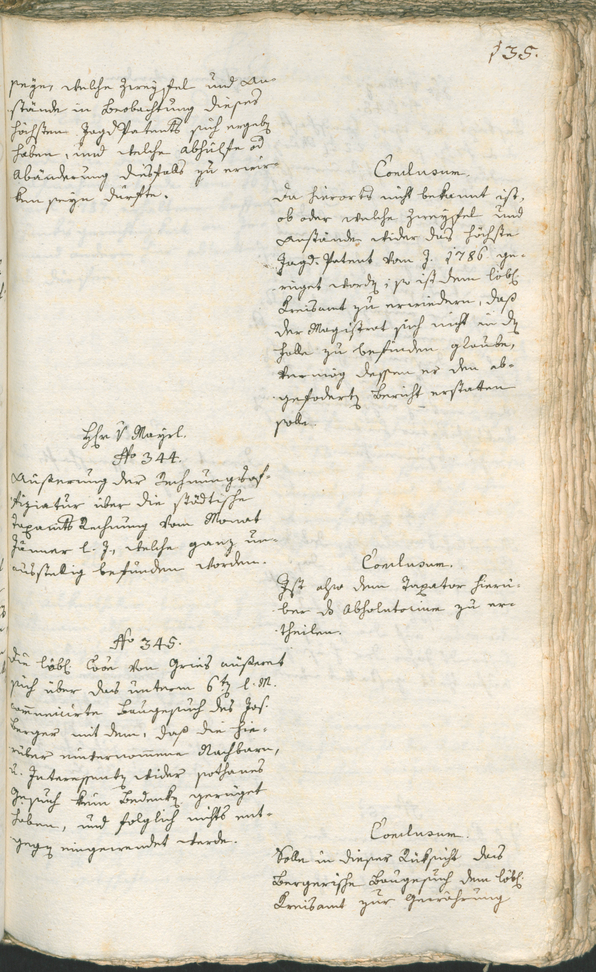 135.
seyen, welche Zweyfel und An-
stände in Beobachtung dieses
höchsten Jagd Patents sich ergeben
haben, und welche Abhülfe od
Abänderung diesfalls zu erwir-
ken seyen dürfte.
Conclusum.
Da hierorts nicht bekannt ist,
ob oder welche Zweyfel und
Anstände wider das höchste
Jagd: Patent vom J. 1786 ge-
rüget worden; so ist dem löbl.
Kreisamt zu erwiedern, daß
der Magistrat sich nicht in dem
Falle zu befinden glaube,
vermög dessen er den ab-
gefoderten Bericht erstatten
solle.
Hr v Mayrl.
No 344.
Äußerung der Rechnungsof-
fiziatur über die städtische
Taxamts Rechnung vom Monat
Jänner l. J., welche ganz un-
ausstellig befunden worden.
Conclusum.
Ist also dem Taxator hierü-
ber das Absolutorium zu er-
theilen.
No 345.
Die löbl. Coon von Gries äußeret
sich über das unterm 6ten l. M.
communicirte Baugesuch des Jos.
Berger mit dem, daß die hie-
rüber einvernommene Nachbarn,
u. Interessenten wider sothanes
Gesuch kein Bedenken gerüget
haben, und folglich nichts ent-
gegen eingewendet werde.
Conclusum.
Solle in dieser Rüksicht das
Bergerische Baugesuch dem löbl.
Kreisamt zur Gewährung